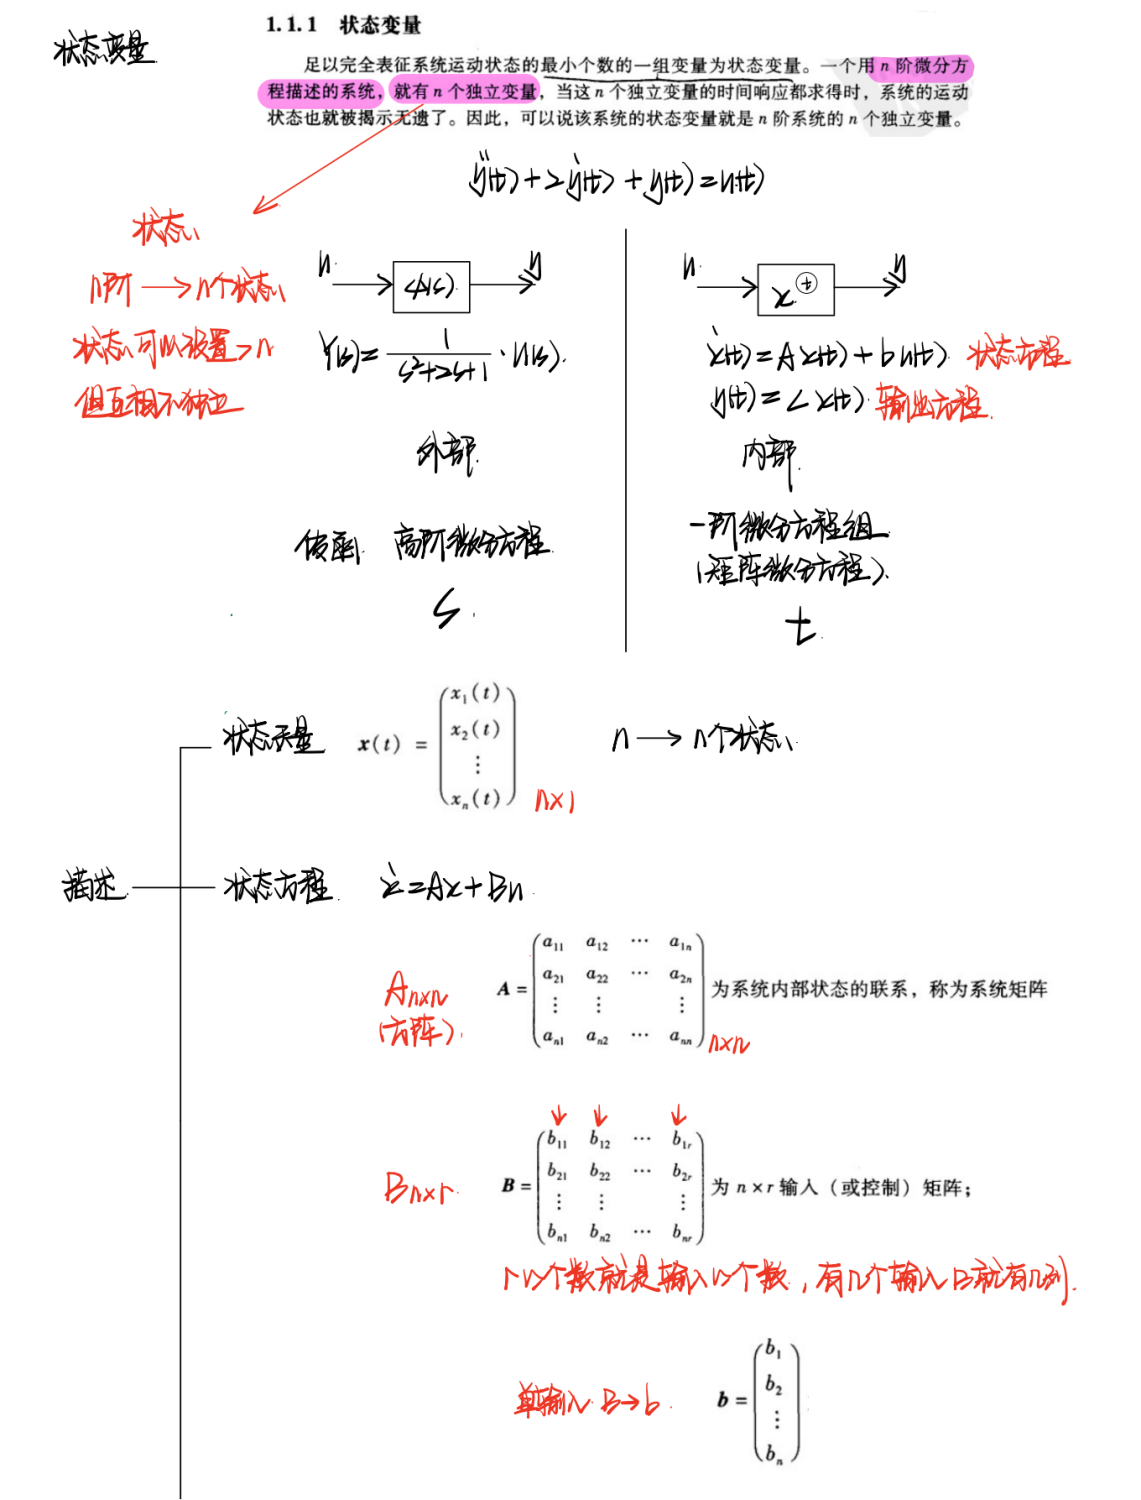 1.1.1 状态变量
状态变量
足以完全表征系统运动状态的最小个数的一组变量为状态变量。一个用 n 阶微分方
程描述的系统，就有 n 个独立变量，当这 n 个独立变量的时间响应都求得时，系统的运动
状态也就被揭示无遗了。因此，可以说该系统的状态变量就是 n 阶系统的 n 个独立变量。
ÿ(t)+2ẏ(t)+y(t)=u(t)
状态
n阶→n个状态
状态可以设置>n
但互相不独立
u φ(s) y
Y(s)=1/(s²+2s+1)·U(s)
外部
传函 高阶微分方程
S
u x(t) y
ẋ(t)=Ax(t)+bu(t) 状态方程
y(t)=Cx(t) 输出方程
内部
一阶微分方程组
(矩阵微分方程)
t
描述
状态矢量 x(t) = (x₁(t) x₂(t) ⋮ xₙ(t)) n×1 n→n个状态
状态方程 ẋ=Ax+Bu
Aₙₓₙ
(方阵)
A =
a₁₁ a₁₂ ⋯ a₁ₙ
a₂₁ a₂₂ ⋯ a₂ₙ
⋮ ⋮ ⋮
aₙ₁ aₙ₂ ⋯ aₙₙ
n×n
为系统内部状态的联系，称为系统矩阵
Bₙₓᵣ
B =
b₁₁ b₁₂ ⋯ b₁ᵣ
b₂₁ b₂₂ ⋯ b₂ᵣ
⋮ ⋮ ⋮
bₙ₁ bₙ₂ ⋯ bₙᵣ
为 n×r 输入（或控制）矩阵；
r的个数就是输入的个数，有几个输入B就有几列.
单输入 B→b
b =
b₁
b₂
⋮
bₙ